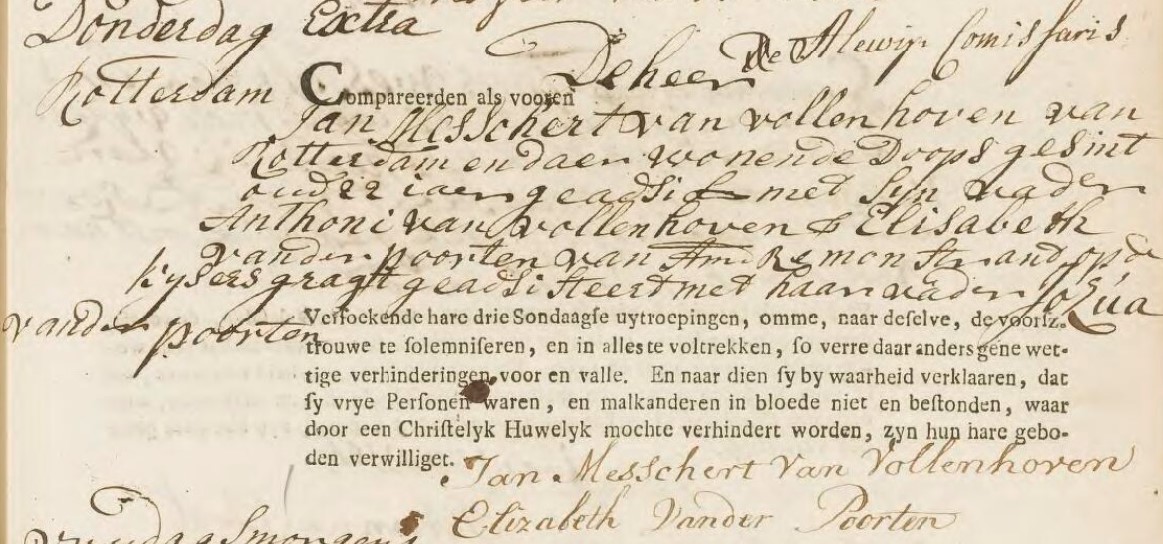 Donderdag Extra
De heer De Alewijn Comissaris
Rotterdam Compareerden als vooren
Jan Messchert van vollenhoven van
Rotterdam en daer wonende Doops gesint
oud 22 iaer geadsist met syn vader
Anthoni van vollenhoven & Elisabeth
vander poorten van Am Remonstrand op de
kysersgragt geadsisteert met haar vader Jozua
vander poorten
Versoekende hare drie Sondaagſe uytroepingen, omme, naar deſelve, de voorſz.
trouwe te ſolemniſeren, en in alles te voltrekken, ſo verre daar anders gene wet-
tige verhinderingen voor en valle. En naar dien ſy by waarheid verklaaren, dat
ſy vrye Perſonen waren, en malkanderen in bloede niet en beſtonden, waar
door een Chriſtelyk Huwelyk mochte verhindert worden, zyn hun hare gebo-
den verwilliget.
Jan Messchert Van Vollenhoven
Elizabeth Vander Poorten